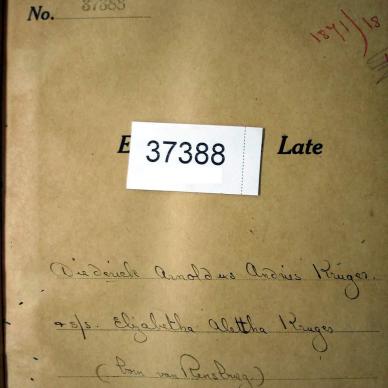 No. 37388
1871/18
E
37388
Late
Diederick Arnoldus Andries Krüger.
& s/s. Elizabetha Alettha Kruger
(born van Rensburg.)